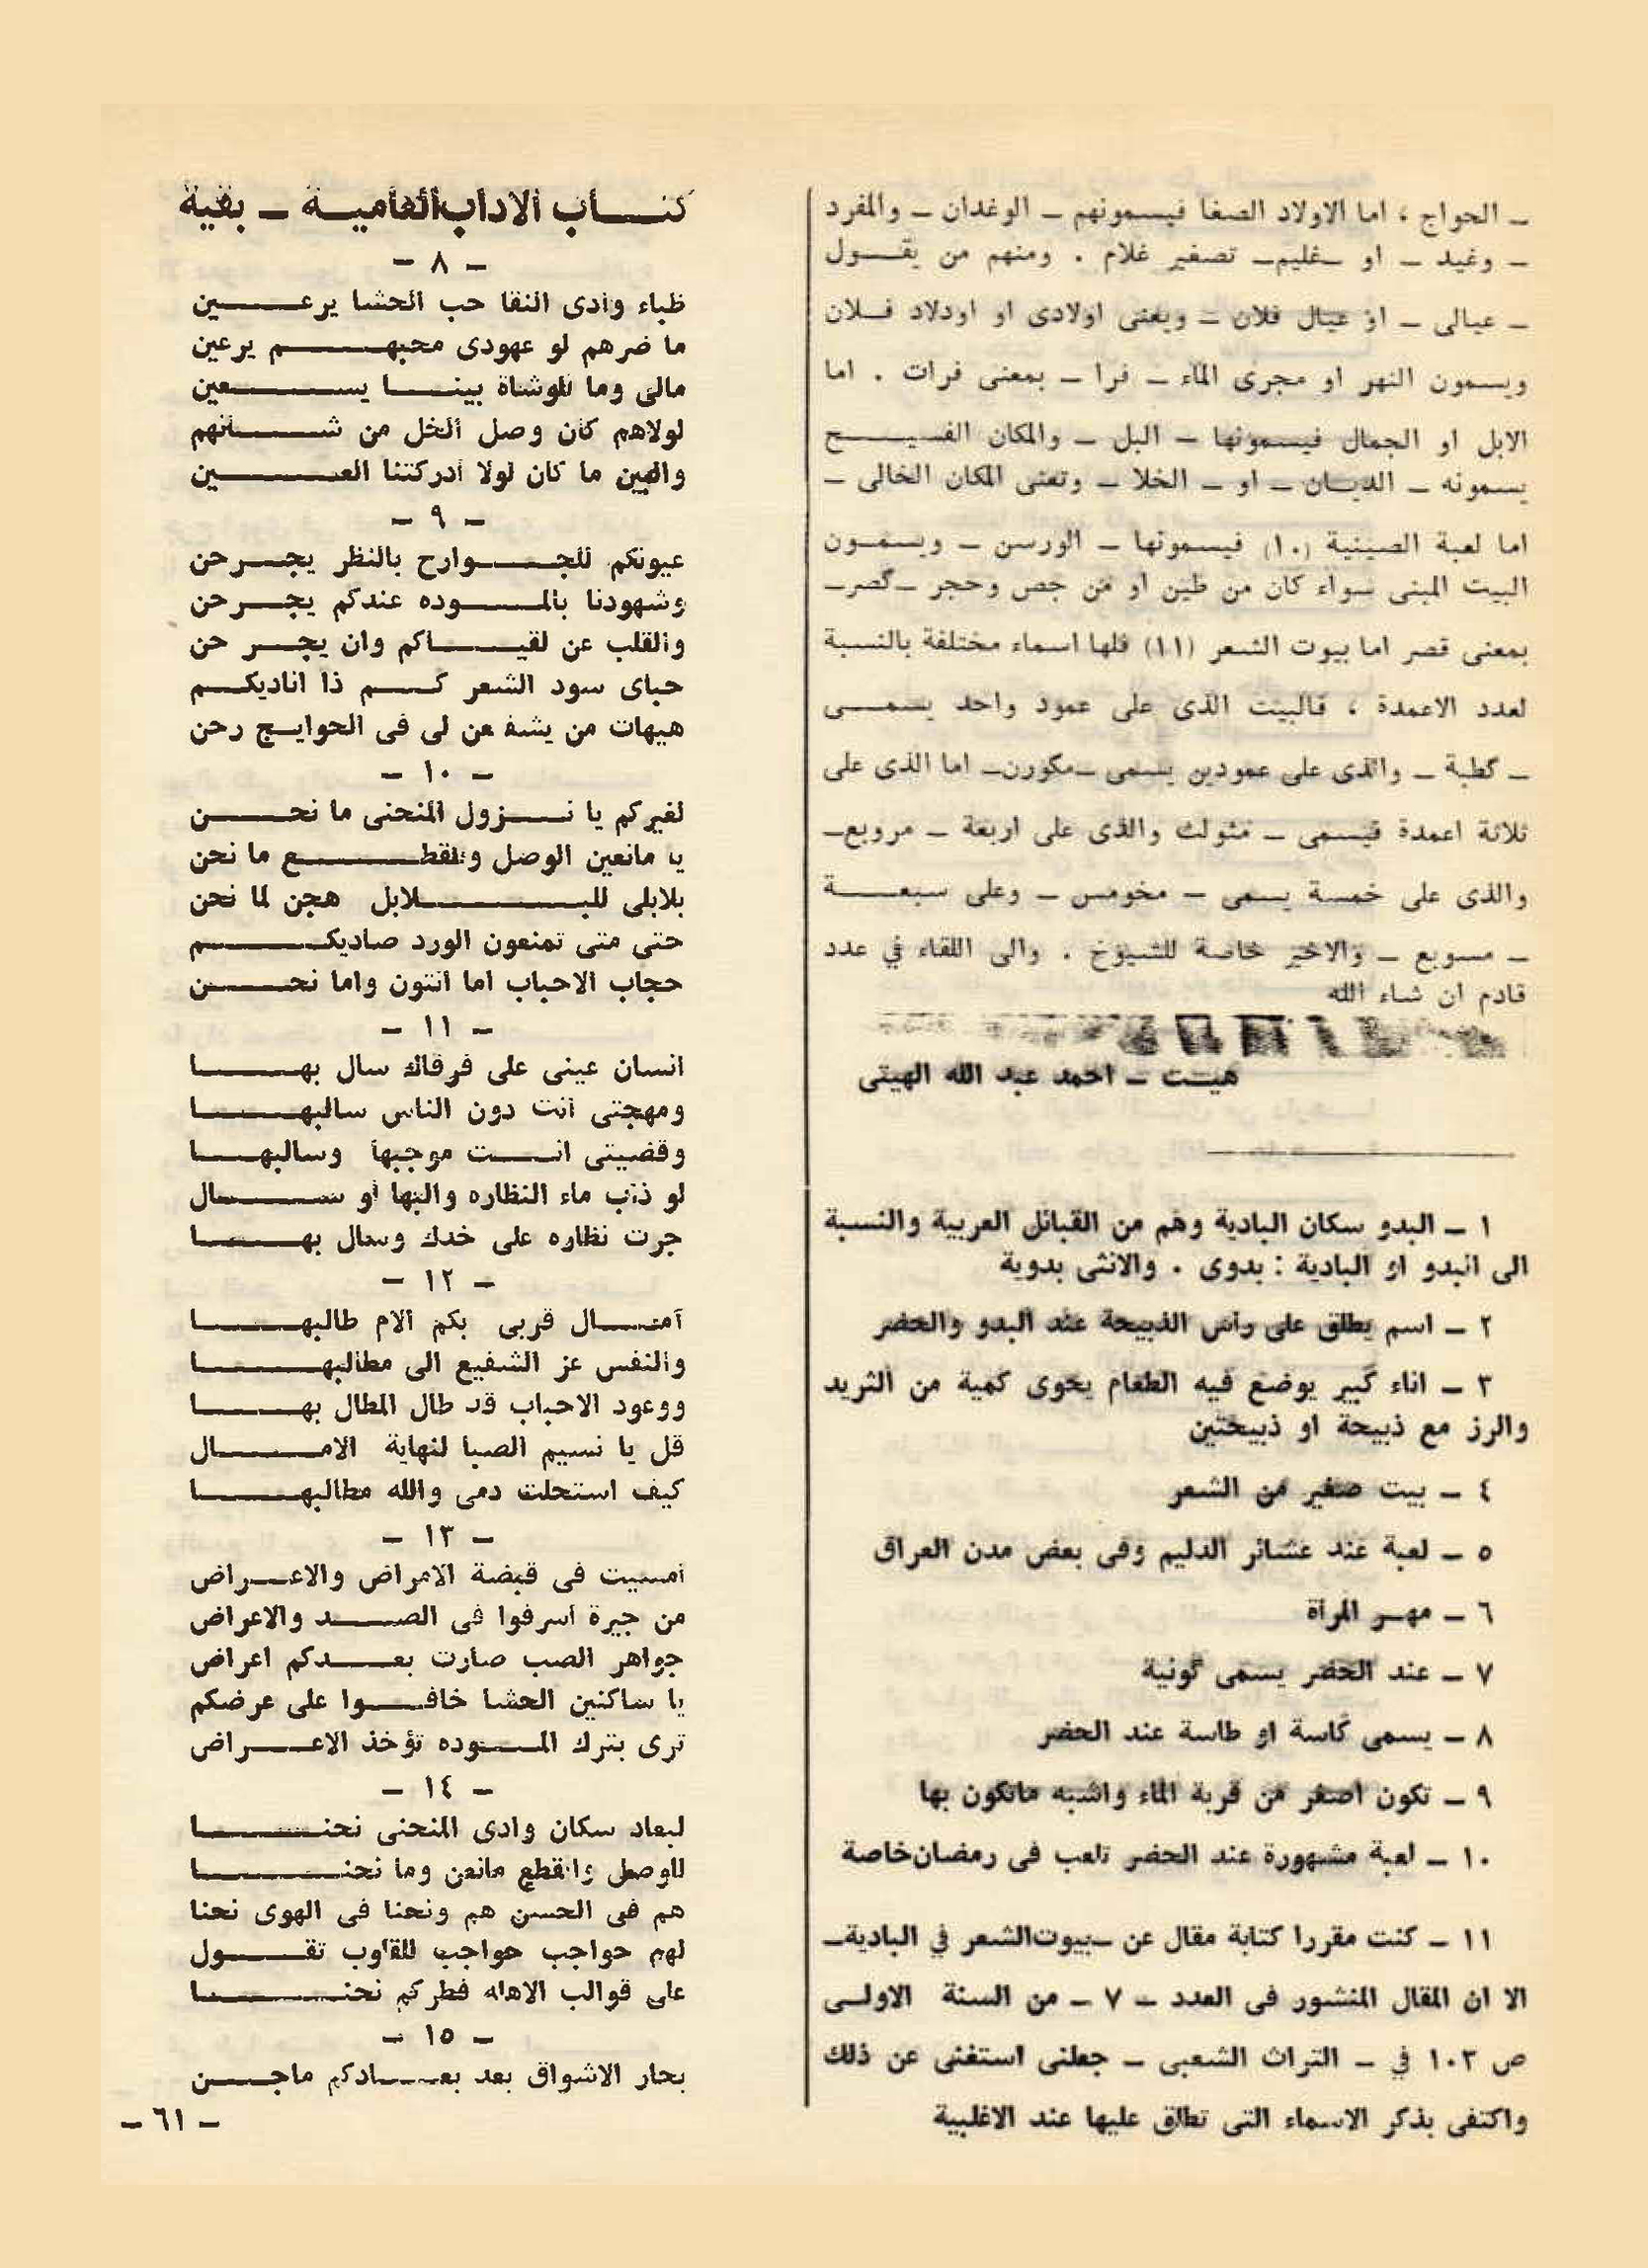 ـ الحواج ، اما الاولاد الصغا فيسمونهم ـ الوغدان ـ والمفرد
ـ وغيد ـ او ـ غليم ـ تصغير غلام . ومنهم من يقول
ـ عيالى ـ او عيال فلان ـ ويعنى اولادى او اودلاد فلان
ويسمون النهر او مجرى الماء ـ فرا ـ بمعنى فرات . اما
الابل او الجمال فيسمونها ـ البل ـ والمكان الفسيح
يسمونه ـ الديان ـ او ـ الخلا ـ وتعنى المكان الخالى ـ
اما لعبة الصينية (١٠) فيسمونها ـ الورسن ـ ويسمون
البيت المبنى سواء كان من طين او من جص وحجر ـ گصر ـ
بمعنى قصر اما بيوت الشعر (١١) فلها اسماء مختلفة بالنسبة
لعدد الاعمدة ، فالبيت الذى على عمود واحد يسمى
ـ گطبة ـ والذى على عمودين يسمى ـ مكورن ـ اما الذى على
ثلاثة اعمدة فيسمى ـ مثولث والذى على اربعة ـ مروبع ـ
والذى على خمسة يسمى ـ مخومس ـ وعلى سبعة
ـ مسوبع ـ والاخير خاصة للشيوخ . والى اللقاء في عدد
قادم ان شاء الله
هيت ـ احمد عبد الله الهيتى
١ ـ البدو سكان البادية وهم من القبائل العربية والنسبة
الى البدو او البادية : بدوى . والانثى بدوية
٢ ـ اسم يطلق على رأس الذبيحة عند البدو والحضر
٣ ـ اناء كبير يوضع فيه الطعام يحوى كمية من الثريد
والرز مع ذبيحة او ذبيحتين
٤ ـ بيت صغير من الشعر
٥ ـ لعبة عند عشائر الدليم وفى بعض مدن العراق
٦ ـ مهر المرأة
٧ ـ عند الحضر يسمى گونية
٨ ـ يسمى كاسة او طاسة عند الحضر
٩ ـ تكون اصغر من قربة الماء واشبه ماتكون بها
١٠ ـ لعبة مشهورة عند الحضر تلعب فى رمضان خاصة
١١ ـ كنت مقررا كتابة مقال عن ـ بيوت الشعر في البادية ـ
الا ان المقال المنشور فى العدد ـ ٧ ـ من السنة الاولى
ص ١٠٣ في ـ التراث الشعبى ـ جعلنى استغنى عن ذلك
واكتفى بذكر الاسماء التى تطلق عليها عند الاغلبية
كتاب الاداب العامية ـ بقية
ـ ٨ ـ
ظباء وادى النقا حب الحشا يرعين
ما ضرهم لو عهودى محبهم يرعين
مالى وما للوشاة بينا يسعين
لولاهم كان وصل الخل من شأنهم
والبين ما كان لولا أدركتنا العين
ـ ٩ ـ
عيونكم للجوارح بالنظر يجرحن
وشهودنا بالموده عندكم يجرحن
والقلب عن لقياكم وان يجر حن
حباى سود الشعر كم ذا اناديكم
هيهات من يشفعن لى فى الحوايج رحن
ـ ١٠ ـ
لغيركم يا نزول المنحنى ما نحن
يا مانعين الوصل وللقطع ما نحن
بلابلى للبلابل هجن لما نحن
حتى متى تمنعون الورد صاديكم
حجاب الاحباب اما انتون واما نحن
ـ ١١ ـ
انسان عينى على فرقاك سال بها
ومهجتى انت دون الناس سالبها
وقضيتى انت موجبها وسالبها
لو ذاب ماء النظاره والبها أو سال
جرت نظاره على خدك وسال بها
ـ ١٢ ـ
آمال قربى بكم الام طالبها
والنفس عز الشفيع الى مطالبها
ووعود الاحباب قد طال المطال بها
قل يا نسيم الصبا لنهاية الامال
كيف استحلت دمى والله مطالبها
ـ ١٣ ـ
أمسيت فى قبضة الامراض والاعراض
من جيرة اسرفوا فى الصد والاعراض
جواهر الصب صارت بعدكم اعراض
يا ساكنين الحشا خافوا على عرضكم
ترى بترك الموده تؤخذ الاعراض
ـ ١٤ ـ
لبعاد سكان وادى المنحنى نحنا
للوصل والقطع مانعن وما نحنا
هم فى الحسن هم ونحنا فى الهوى نحنا
لهم حواجب حواجب للقلوب تقول
على قوالب الاهله فطركم نحنا
ـ ١٥ ـ
بحار الاشواق بعد بعادكم ماجن
ـ ٦١ ـ